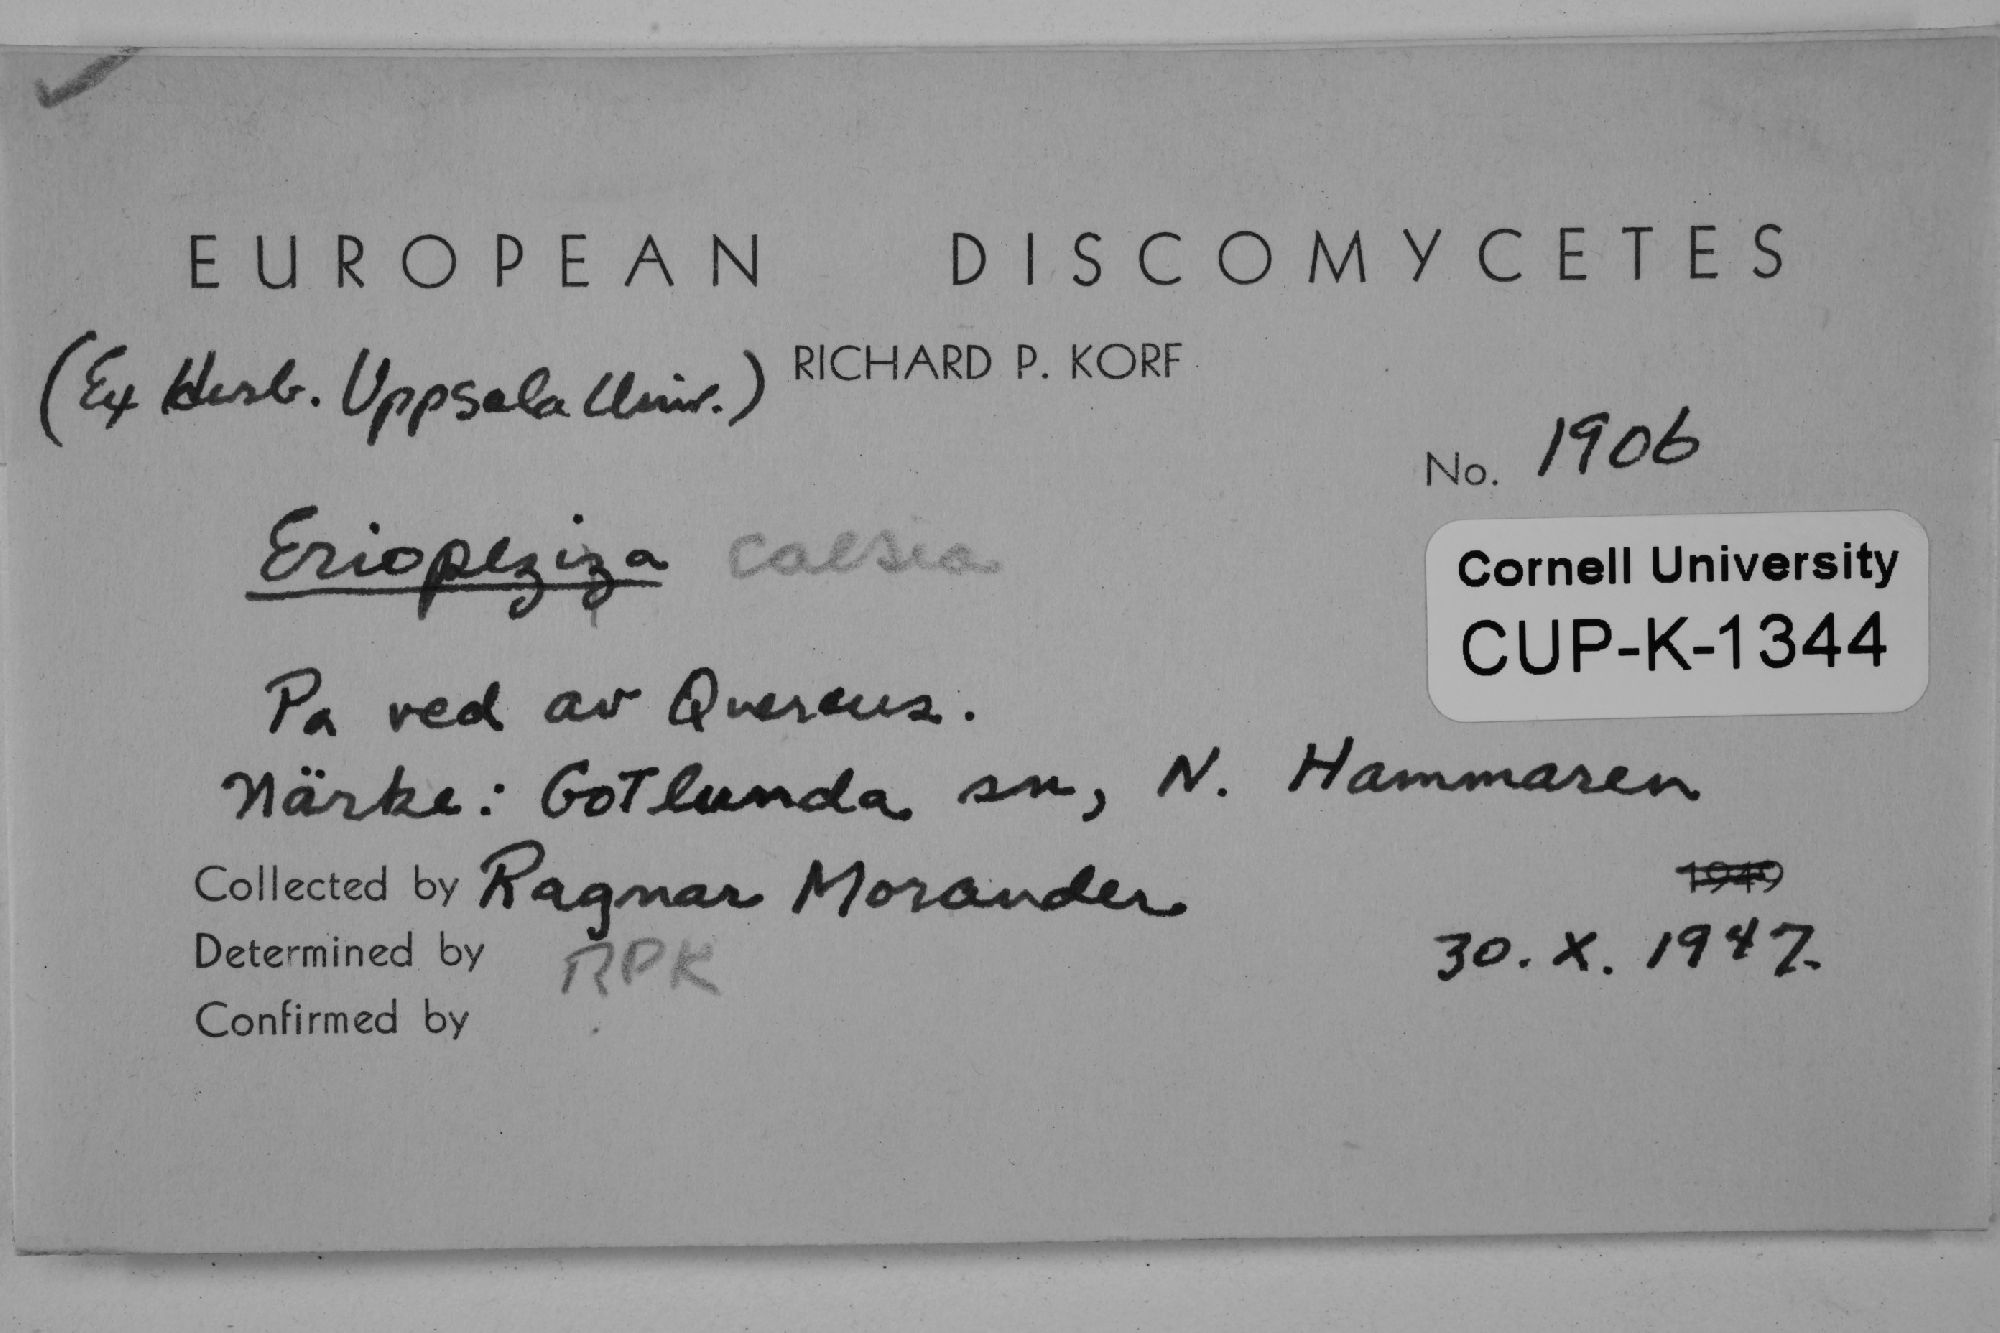 EUROPEAN DISCOMYCETES
(Ex Herb. Uppsala Univ.) RICHARD P. KORF
No. 1906
Eriopeziza caesia
Cornell University
CUP-K-1344
Pa ved av Quercus.
Närke: Gotlunda sn, N. Hammaren
Collected by Ragnar Morander
1949
Determined by RPK
30. X. 1947.
Confirmed by